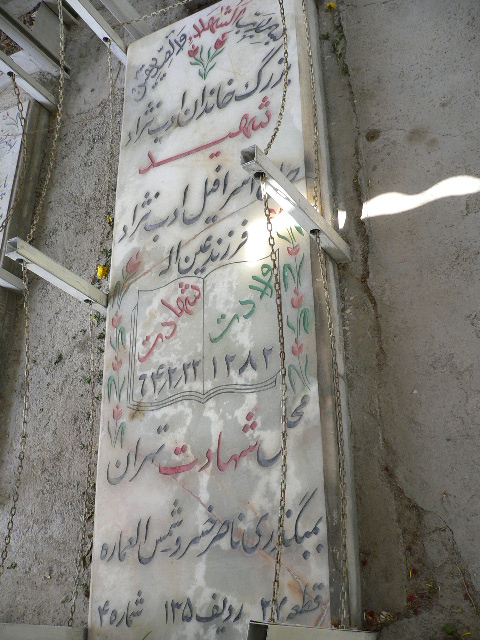 الشهداء والصدیقین
بزرگ خاندان ادب نژاد
شهید
اسرافیل ادب نژاد
فرزند عین اله
ولادت شهادت
۱۲۸۲ ۶۴/۲/۲۲
محل شهادت تهران
بمبگذری ناصرخسرو شمس العماره
قطعه ۲۷ ردیف ۱۳۵ شماره ۴